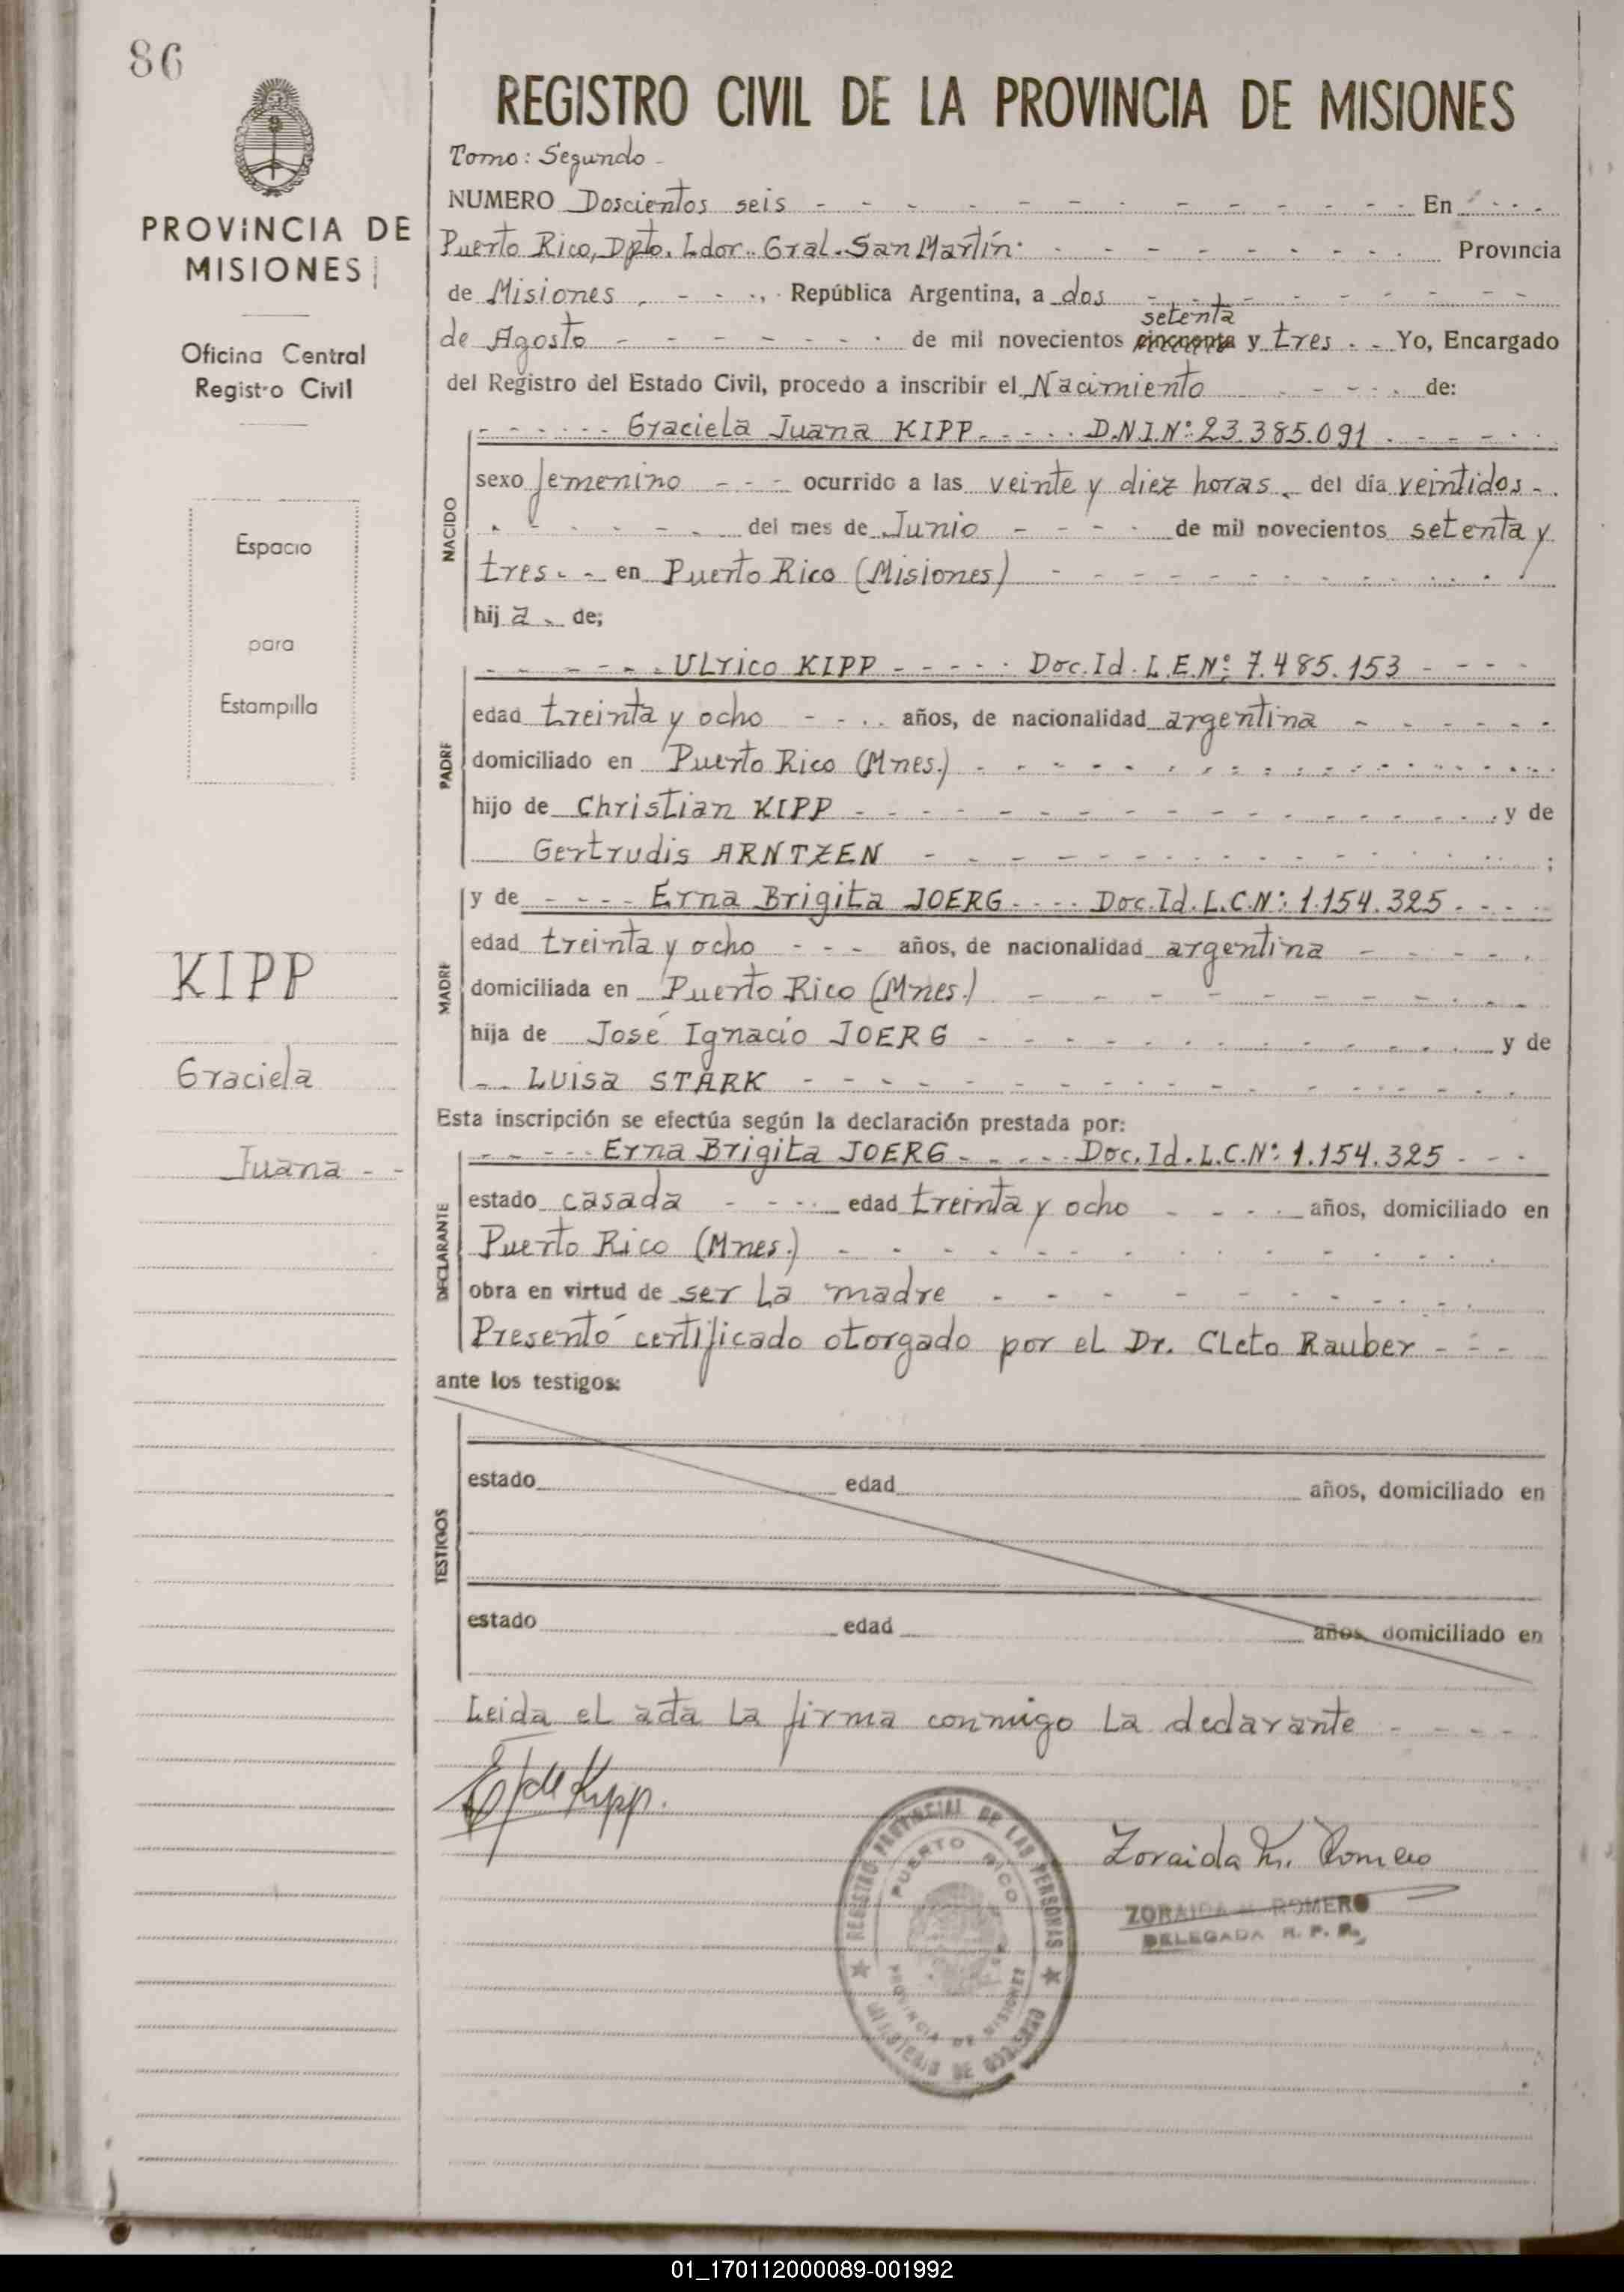 86
PROVINCIA DE
MISIONES
Oficina Central
Registro Civil
Espacio
para
Estampilla
KIPP
Graciela
Juana - -
REGISTRO CIVIL DE LA PROVINCIA DE MISIONES
Tomo: Segundo -
NUMERO Doscientos seis - - - En - - -
Puerto Rico, Dpto. Ldor. Gral. San Martín - - - Provincia
de Misiones - - -, República Argentina, a dos - - -
setenta
de Agosto - - - de mil novecientos cincuenta y tres - - Yo, Encargado
del Registro del Estado Civil, procedo a inscribir el Nacimiento - - - de:
NACIDO
- - - Graciela Juana KIPP - - - D.N.I.Nº: 23.385.091 - - -
sexo femenino - - - ocurrido a las veinte y diez horas - del día veintidos -
- - - del mes de Junio - - - de mil novecientos setenta y
tres - - en Puerto Rico (Misiones) - - -
hij a - de;
PADRE
- - - Ulrico KIPP - - - Doc. Id. L.E.Nº: 7.485.153 - - -
edad treinta y ocho - - - años, de nacionalidad argentina - - -
domiciliado en Puerto Rico (Mnes.) - - -
hijo de Christian KIPP - - - y de
Gertrudis ARNTZEN - - - ;
MADRE
y de - - - Erna Brigita JOERG - - - Doc. Id. L.C.Nº: 1.154.325 - - -
edad treinta y ocho - - - años, de nacionalidad argentina - - -
domiciliada en Puerto Rico (Mnes.) - - -
hija de José Ignacio JOERG - - - y de
- - Luisa STARK - - -
Esta inscripción se efectúa según la declaración prestada por:
DECLARANTE
- - - Erna Brigita JOERG - - - Doc. Id. L.C.Nº: 1.154.325 - - -
estado casada - - - edad treinta y ocho - - - años, domiciliado en
Puerto Rico (Mnes.) - - -
obra en virtud de ser la madre - - -
Presentó certificado otorgado por el Dr. Cleto Rauber - - -
ante los testigos:
TESTIGOS
estado edad años, domiciliado en
estado edad años, domiciliado en
Leida el acta la firma conmigo la declarante - - -
E J de Kipp.
REGISTRO PROVINCIAL DE LAS PERSONAS
PUERTO RICO
PROVINCIA DE MISIONES
MINISTERIO DE GOBIERNO
Zoraida M. Romero
ZORAIDA M. ROMERO
DELEGADA R. P. P.
01_170112000089-001992